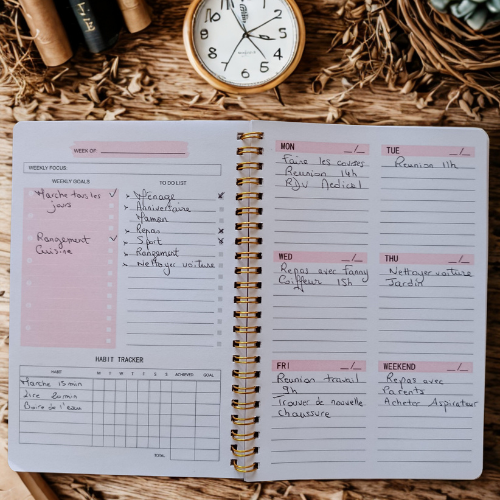 WEEK OF:
WEEKLY FOCUS:
WEEKLY GOALS
Marche tous les
jours
Rangement
Cuisine
TO DO LIST
Ménage
Anniversaire
Maman
Repas
Sport
Rangement
Nettoyer voiture
HABIT TRACKER
HABIT M T W T F S S ACHIEVED GOAL
Marche 15 min
Lire 20 min
Boire de l'eau
TOTAL
MON _/_
Faire les courses
Reunion 14h
RDV Medical
TUE _/_
Reunion 11h
WED _/_
Repas avec Fanny
Coiffeur 15h
THU _/_
Nettoyer voiture
Jardin
FRI _/_
Reunion travail
9h
Trouver de nouvelle
chaussure
WEEKEND _/_
Repas avec
Parents
Acheter Aspirateur